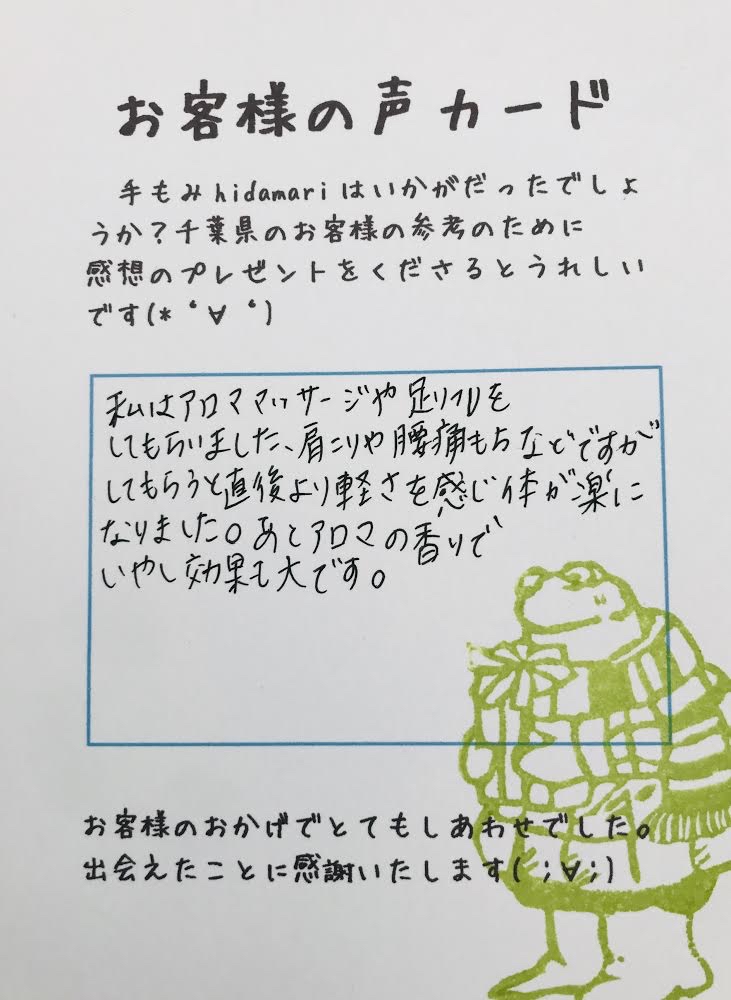 お客様の声カード
手もみhidamariはいかがだったでしょ
うか?千葉県のお客様の参考のために
感想のプレゼントをくださるとうれしい
です(*‘∀‘)
私はアロママッサージや足リフレを
してもらいました、肩こりや腰痛もちなどですが
してもらうと直後より軽さを感じ体が楽に
なりました。あとアロマの香りで
いやし効果も大です。
お客様のおかげでとてもしあわせでした。
出会えたことに感謝いたします(;∀;)